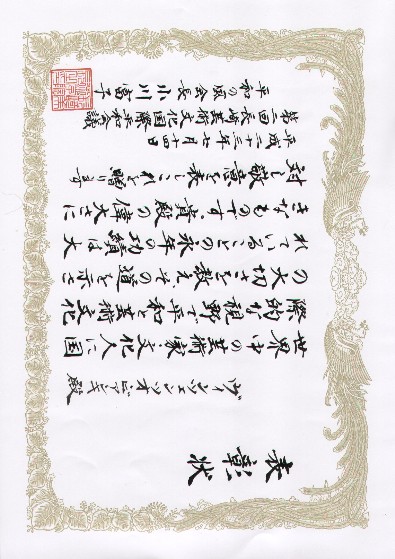 表彰状
ヴィンツェンツオ・ビアンキ殿
世界中の芸術家文化人に国
際的な視野で平和と芸術文化
の大切さを教えその道を示さ
れていることの永年の功績は大
きなものです 貴殿の偉大さに
対し敬意を表しこれを贈ります
平成二十三年七月十四日
第二回長崎芸術文化国際平和会議
平和の風会長 小川富子